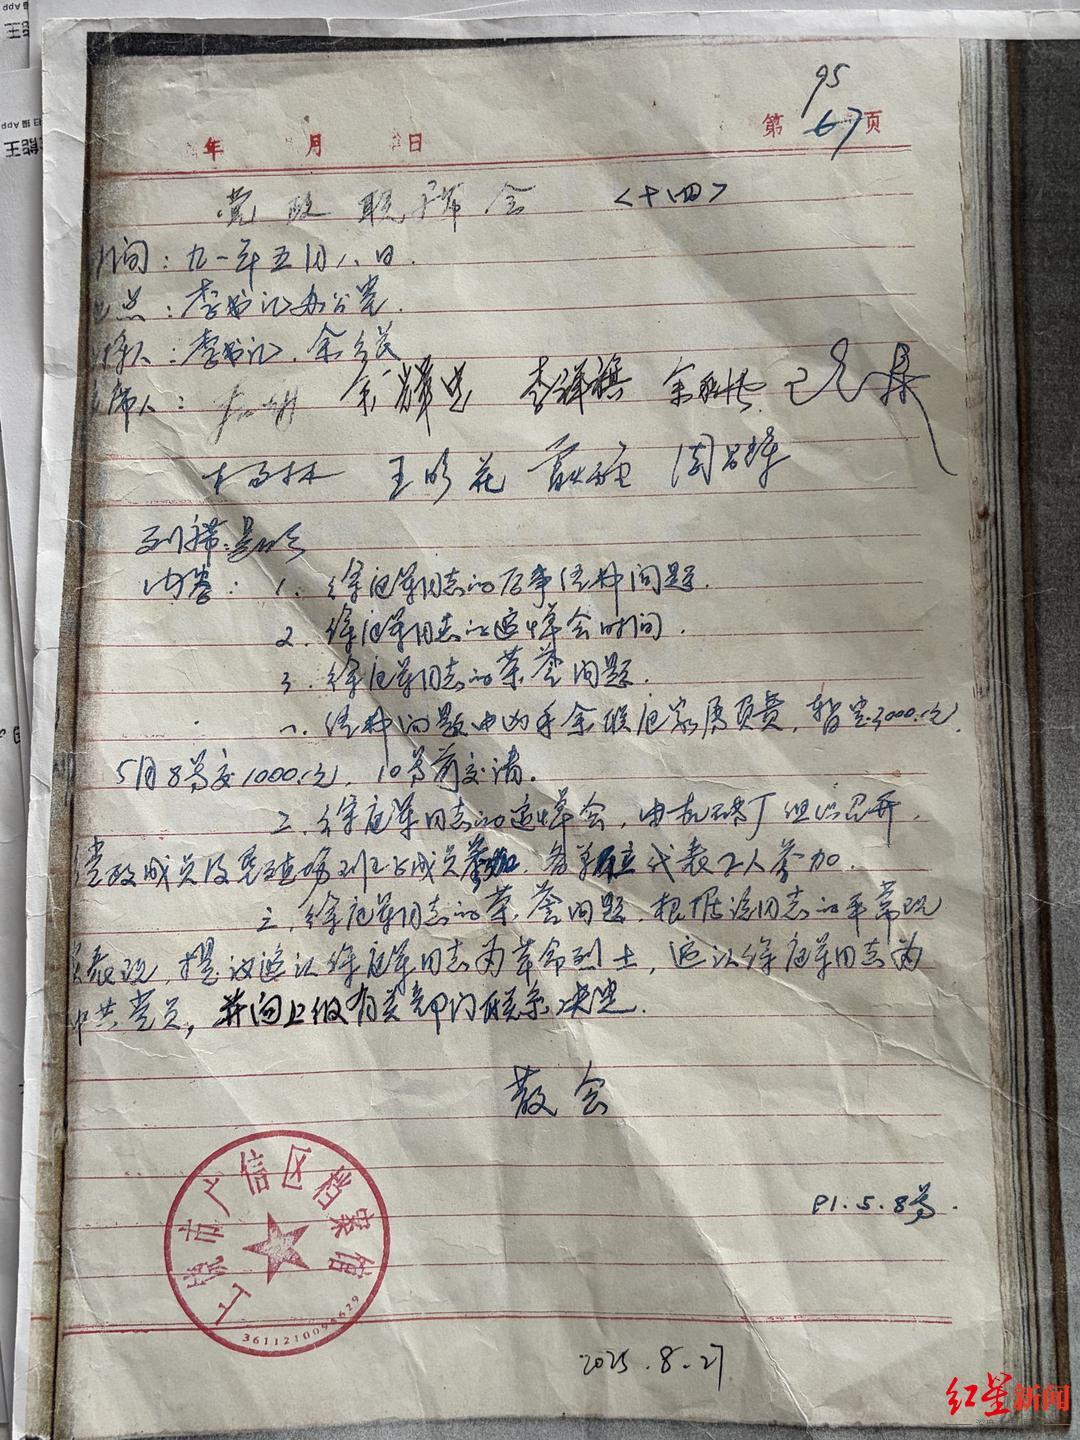 95
年 月 日 第67页
党政联席会 <十四>
间：九一年五月八日.
点：李书记办公室.
持人：李书记、余乡长
席人： 余辉忠 李祥旗
杨林 王明花
列席：
内容：1. 徐庭军同志的后事经办问题.
2. 徐庭军同志的追悼会时间.
3. 徐庭军同志的荣誉问题.
一、 问题由凶手余 家属负责，暂定3000.元
5月8号交1000.元，10号前交清.
二、徐庭军同志的追悼会，由 厂组织召开，
党政成员及垦殖场班子成员参加.各单位代表2人参加.
三、徐庭军同志的荣誉问题.根据该同志的平常现
表现，提议追认徐庭军同志为革命烈士，追认徐庭军同志为
中共党员，并向上级有关部门联系决定.
散会
91.5.8号.
上饶市广信区档案馆
2025.8.27
红星新闻